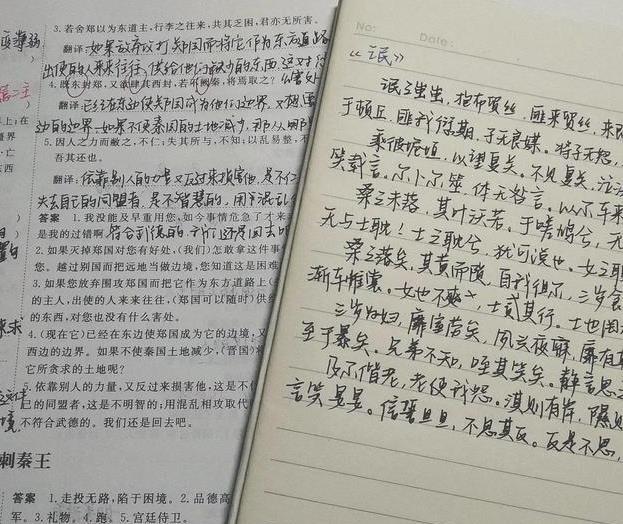 3. 若舍郑以为东道主,行李之往来,共其乏困,君亦无所害。
翻译:如果放弃攻打郑国而将它作为东方道路
出使的人来来往往,供给他们缺少的东西,这对
4. 既东封郑,又欲肆其西封,若不阙秦,将焉取之?
翻译:已经在东边使郑国成为他们边界,又想
边的边界,如果不使秦国的土地减少,那从哪
5. 因人之力而敝之,不仁;失其所与,不知;以乱易整,不
吾其还也。
翻译:依靠别人的力量又反过来损害他,是不仁
失去自己的同盟者,是不智慧的,用
答案 1. 我没能及早重用您,如今事情危急了才来
是我的过错啊
符合武德的 我们还是回去吧
2. 如果灭掉郑国对您有好处,(我们)怎敢拿这件事
您。越过别国而把远地当做边境,您知道这是困难
3. 如果您放弃围攻郑国而把它作为东方道路上(
的主人,出使的人来来往往,(郑国可以随时)供
的东西,对您也没有什么害处。
4. (现在它)已经在东边使郑国成为它的边境,又
西边的边界。如果不使秦国土地减少,(晋国)
它所贪求的土地呢?
5. 依靠别人的力量,又反过来损害他,这是不
已的同盟者,这是不明智的;用混乱相攻取代
不符合武德的。我们还是回去吧。
刺秦王
答案 1. 走投无路,陷于困境。2. 品德高
军。3. 礼物。4. 跑。5. 宫廷侍卫。
No:
Date:
《氓》
氓之蚩蚩,抱布贸丝,匪来贸丝,来
于顿丘,匪我愆期,子无良媒。将子无怒,
乘彼垝垣,以望复关。不见复关,泣
笑载言。尔卜尔筮,体无咎言。以尔车来
桑之未落,其叶沃若。于嗟鸠兮,无
无与士耽!士之耽兮,犹可说也。女之
桑之落矣,其黄而陨,自我徂尔,三岁食
渐车帷裳。女也不爽,士贰其行。士也罔
三岁为妇,靡室劳矣,夙兴夜寐,靡有
至于暴矣。兄弟不知,咥其笑矣。静言思
及尔偕老,老使我怨。淇则有岸,隰
言笑晏晏。信誓旦旦,不思其反。反是不思,